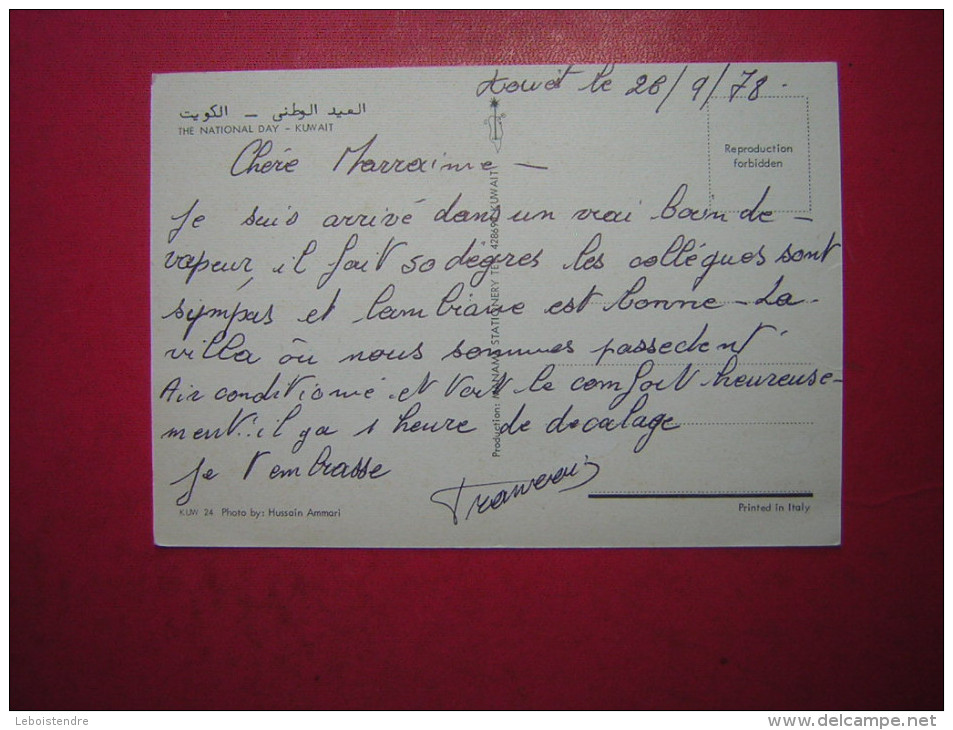 Kowët le 28/9/78.
العيد الوطني – الكويت
THE NATIONAL DAY - KUWAIT
Reproduction
forbidden
Chére Marraine –
Je suis arrivé dans un vrai bain de –
vapeur, il fait 50 dégres les collégues sont
sympas et l'ambiance est bonne – La
villa où nous sommes passedent
Air conditionné et tout le comfort heureuse-
ment. il ya 1 heure de decalage
Je t'embrasse
Production: STATIONERY KUWAIT
KUW 24 Photo by: Hussain Ammari
Printed in Italy
Leboistendre
www.delcampe.net